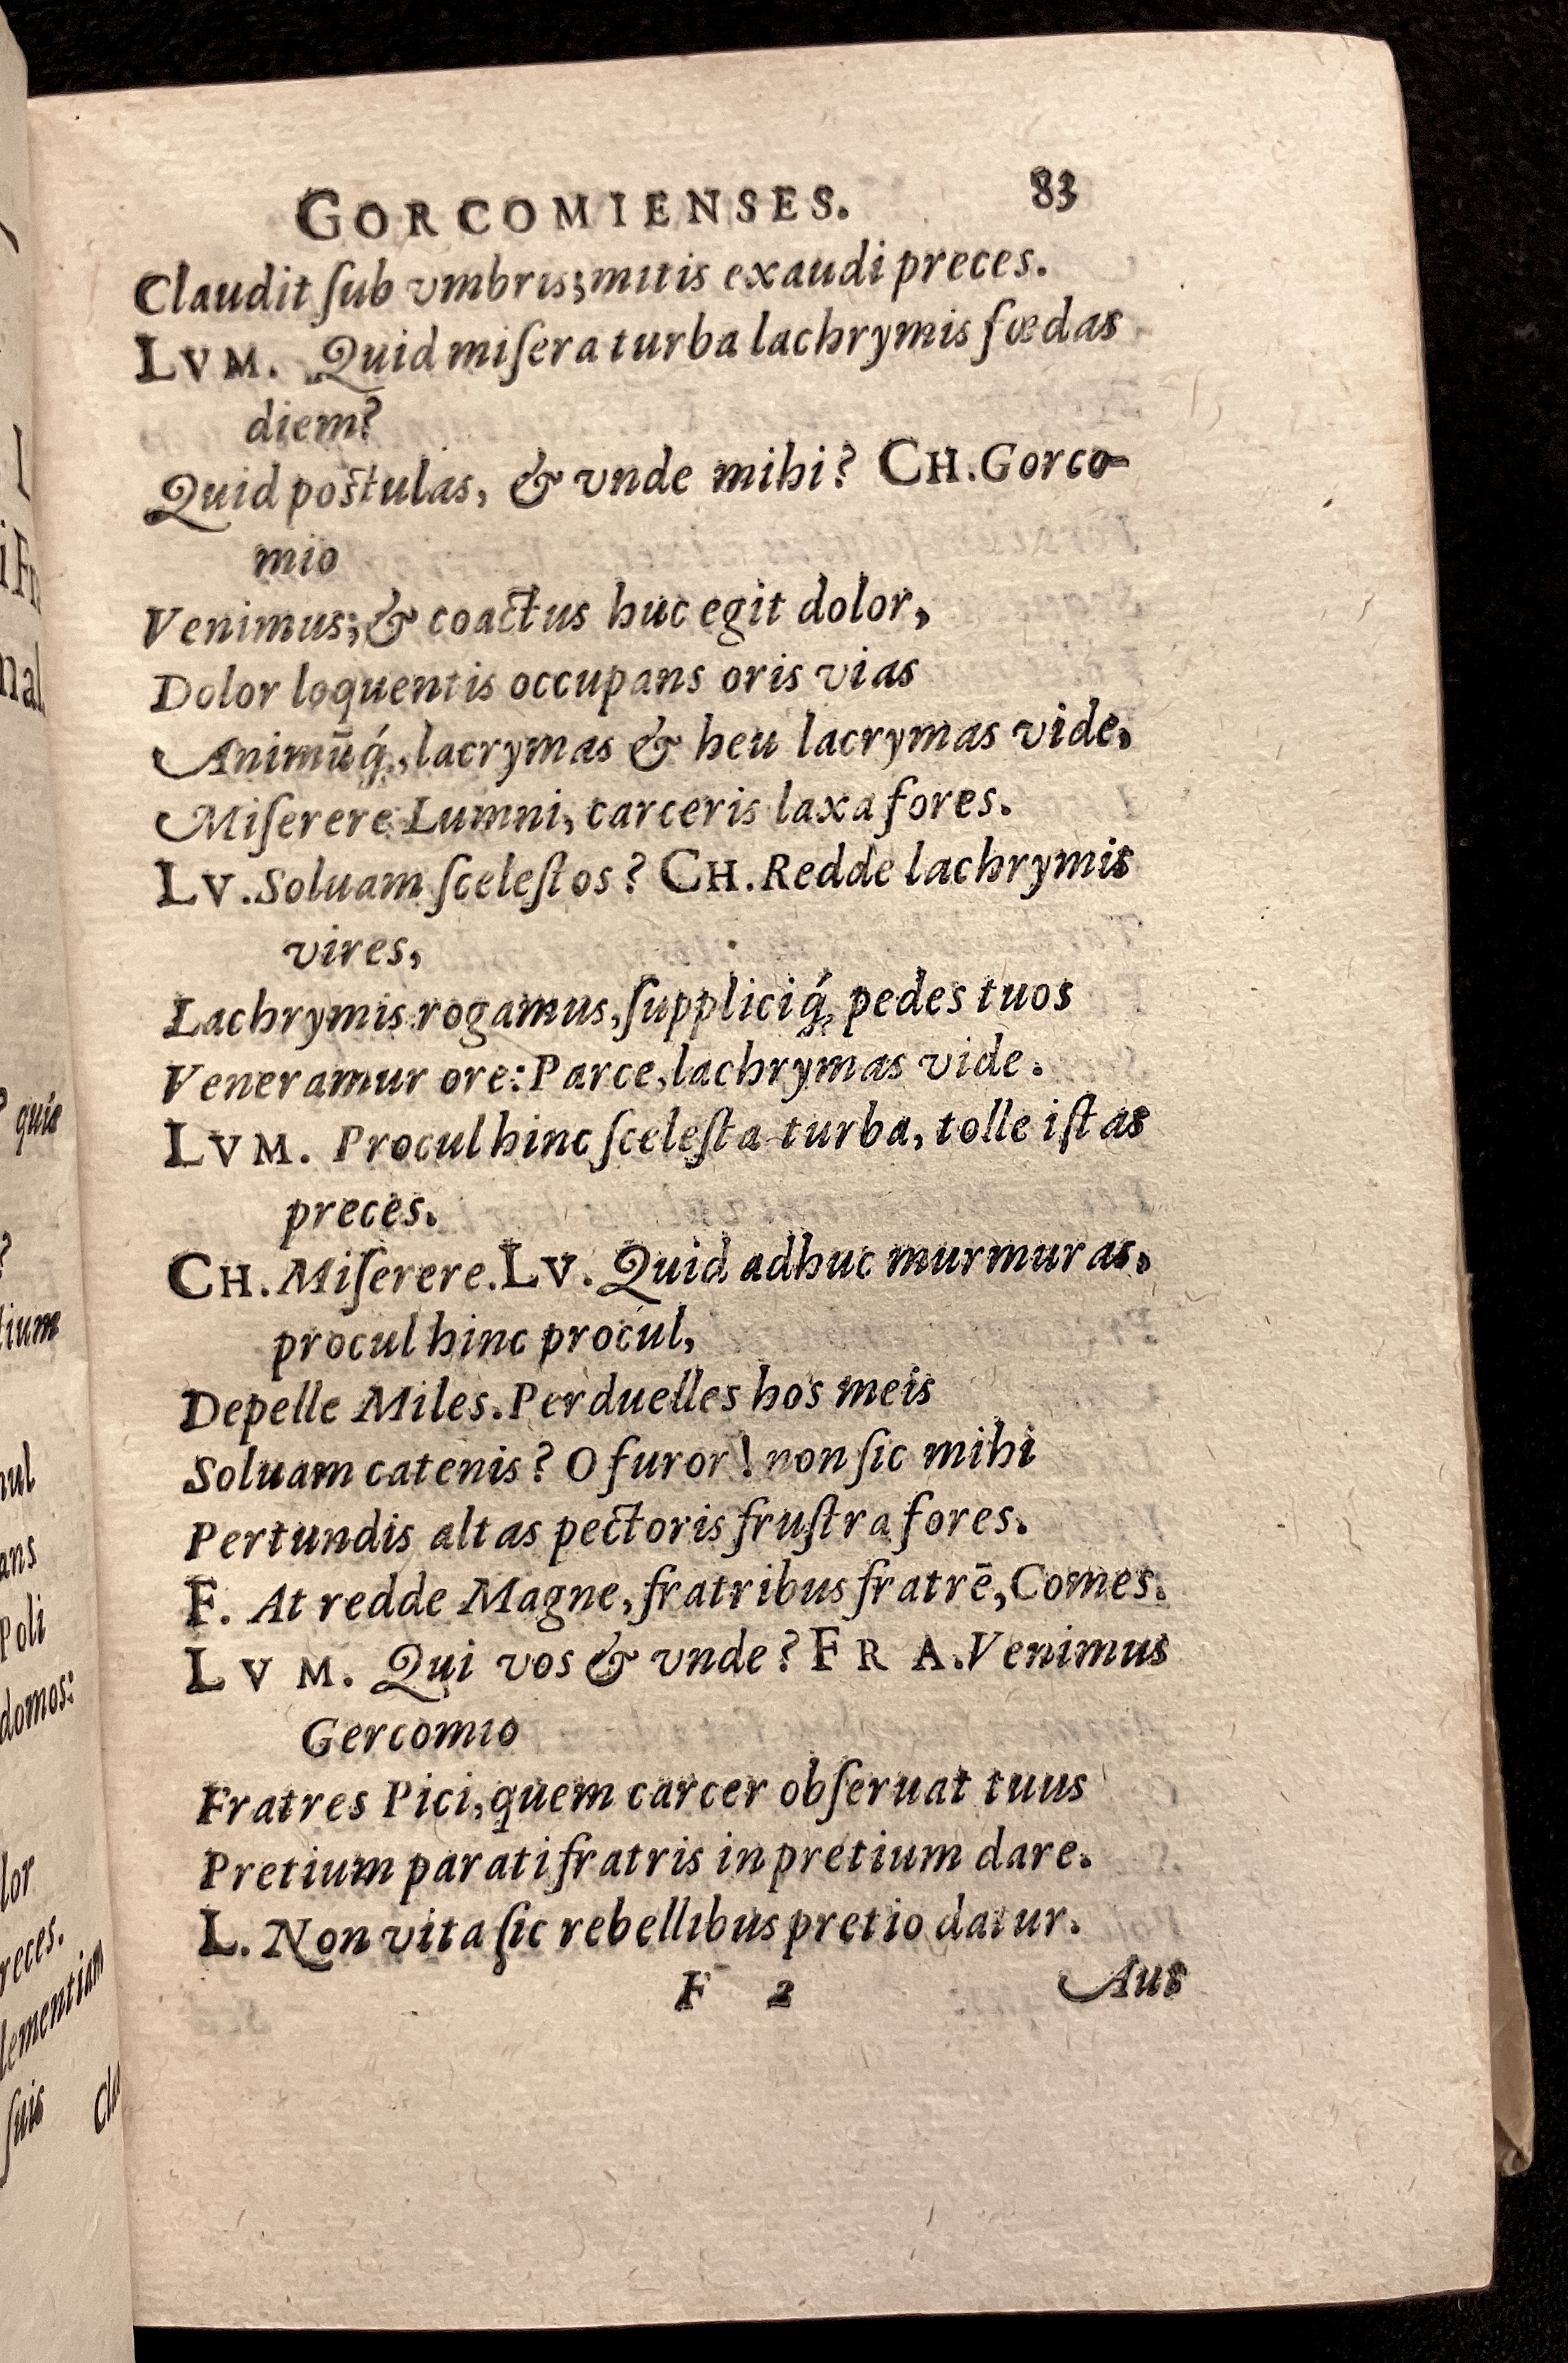 GORCOMIENSES. 83
Claudit ſub vmbris; mitis exaudi preces.
LVM. Quid miſera turba lachrymis fœdas
diem?
Quid poſtulas, & vnde mihi? CH. Gorco-
mio
Venimus; & coactus huc egit dolor,
Dolor loquentis occupans oris vias
Animūq́;, lacrymas & heu lacrymas vide,
Miſerere Lumni, carceris laxa fores.
LV. Soluam ſceleſtos? CH. Redde lachrymis
vires,
Lachrymis rogamus, ſuppliciq́; pedes tuos
Veneramur ore: Parce, lachrymas vide.
LVM. Procul hinc ſceleſta turba, tolle iſtas
preces.
CH. Miſerere. LV. Quid adhuc murmuras,
procul hinc procul,
Depelle Miles. Perduelles hos meis
Soluam catenis? O furor! non ſic mihi
Pertundis altas pectoris fruſtra fores.
F. At redde Magne, fratribus fratrē, Comes.
LVM. Qui vos & vnde? FRA. Venimus
Gercomio
Fratres Pici, quem carcer obſeruat tuus
Pretium parati fratris in pretium dare.
L. Non vita ſic rebellibus pretio datur.
F 2 Aus